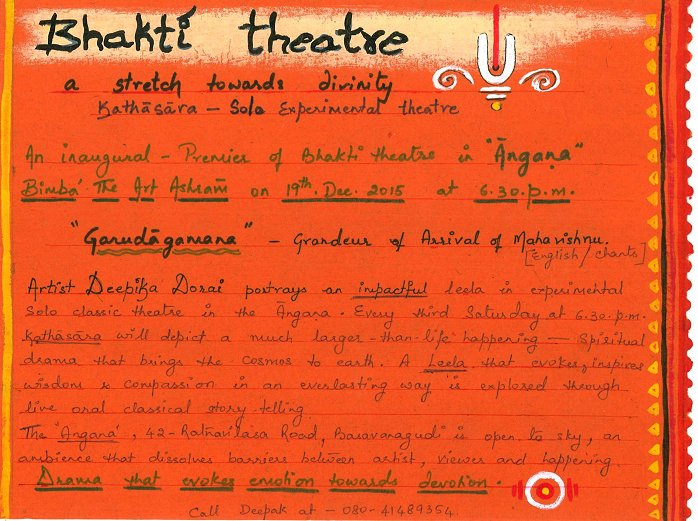 Bhakti theatre
a stretch towards divinity
Kathāsāra – Solo Experimental theatre
An inaugural – Premier of Bhakti theatre in "Āngaṇa"
Bimba' The Art Ashram on 19th. Dec. 2015 at 6.30.p.m.
"Garudāgamana" – Grandeur of Arrival of Mahavishnu.
[English/chants]
Artist Deepika Dorai portrays an impactful leela in experimental
Solo classic theatre in the Āngana. Every third Saturday at 6.30.p.m.
Kathāsāra will depict a much larger-than-life happening – Spiritual
drama that brings the cosmos to earth. A Leela that evokes, inspires
wisdom & compassion in an everlasting way is explored through
live oral classical story telling.
The 'Angana', 42-Ratnavilasa Road, Basavanagudi is open to sky, an
ambience that dissolves barriers between artist, viewer and happening.
Drama that evokes emotion towards devotion.
Call Deepak at – 080-41489354.